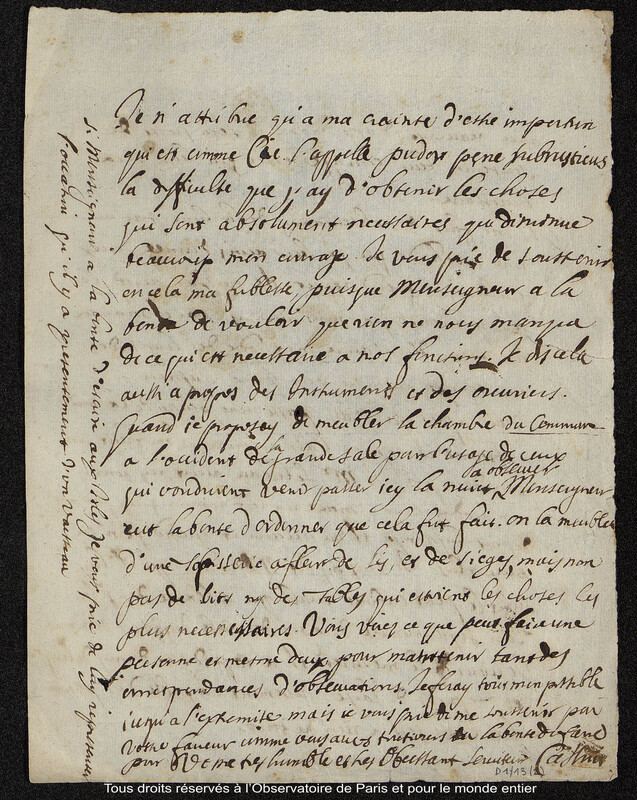 Je n'attribue qu'a ma crainte d'estre importun
qui est comme Cic. l'appelle pudor pene subrusticus
la difficulté que j'ay d'obtenir les choses
qui sont absolument necessaires qui diminue
beaucoup mon courage Je vous prie de soustenir
en cela ma foiblesse, puisque Monseigneur a la
bonté de vouloir que rien ne nous manque
de ce qui est necessaire a nos fonctions. Je dis cela
aussi a propos des Instruments et des ouvriers.
Quand ie proposay de meubler la chambre du Commun
a l'occident de la grande sale pour l'usage de ceux
qui voudroient venir passer icy la nuit a observer Monseigneur
eut la bonté d'ordonner que cela fut fait. on la meubla
d'une tapisserie a fleur de lis et de sieges, mais non
pas de lits ny des tables qui estoient les choses les
plus necessaires. Vous voies ce que peut faire une
personne et mesme deux pour maintenir tant des
correspondances d'observations. Je feray tout mon possible
iusqu'a l'extremité mais ie vous prie de me soustenir par
votre faveur comme vous aves tousiours eu la bonté de faire
pour Votre tres humble et tres Obeissant Serviteur Cassini
Si Monseigneur a la bonté d'escrire aux Isles je vous prie de luy representer
l'occasion qu'il y a presentement d'un Vaisseau
D1/13 (2)
Tous droits réservés à l'Observatoire de Paris et pour le monde entier